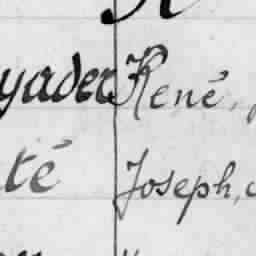 yader René,
té Joseph,